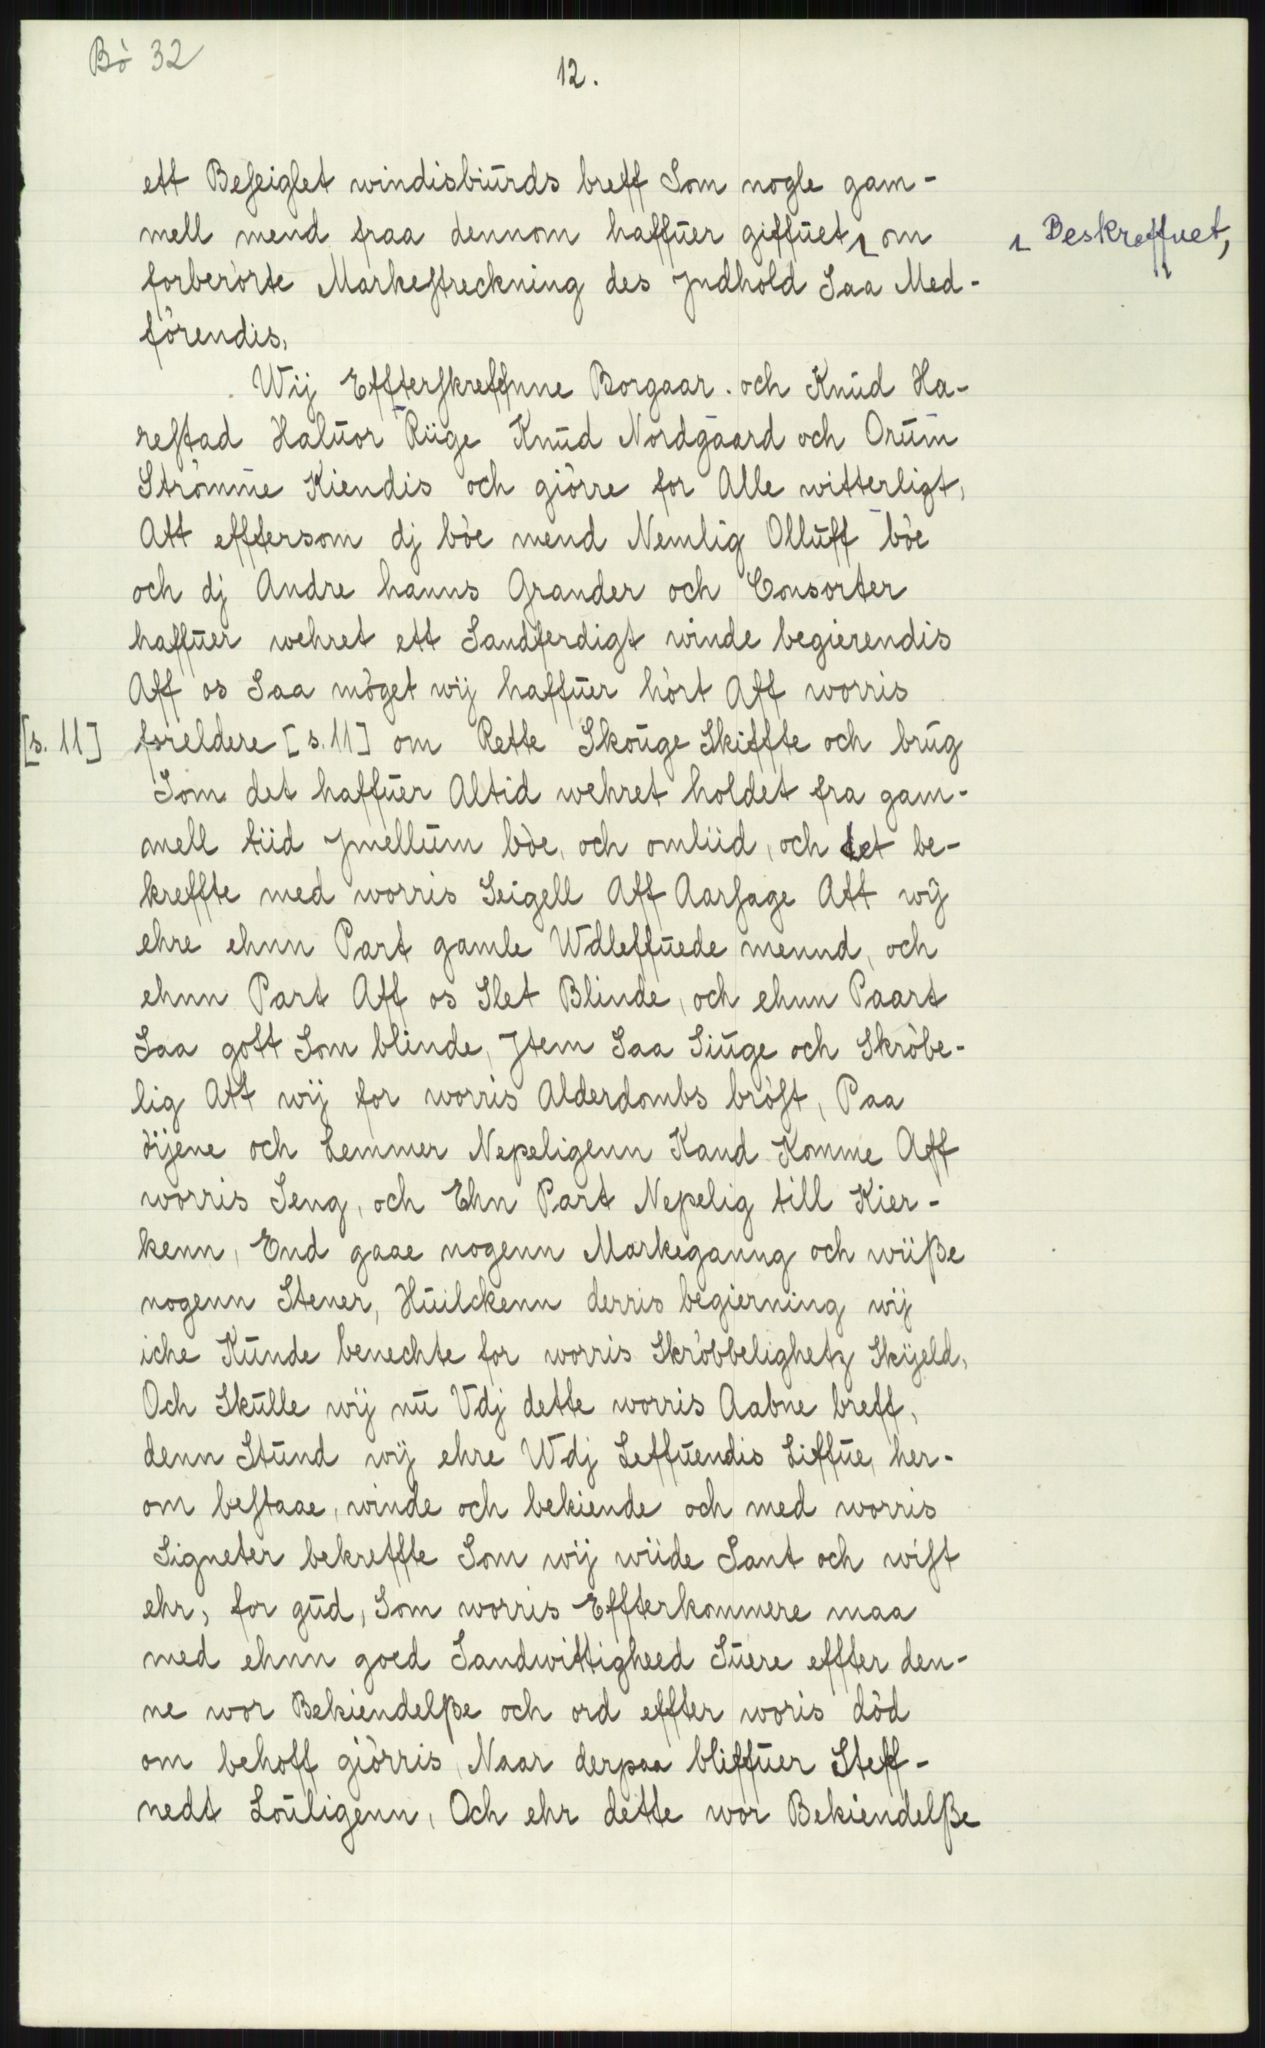 Bò 32
12.
ett Beseiglet windisbiurds breff Som nogle gam-
mell mend fraa dennom haffuer giffuet ⌊ om
⌊ Beskreffuet,
forberòrte Markestreckning des Jndhold Saa Med-
fòrendis,
Wij Effterskreffnne Borgaar. och Knud Ha-
restad Haluor Rüge Knud Nordgaard och Orum
Stròmme Kiendis och giòrre for Alle witterligt,
Att efftersom dj bòe mend Nemlig Olluff bòe
och dj Andre hanns Grander och Consorter
haffuer wehret ett Sandferdigt winde begierendis
Aff os Saa mòget wij haffuer hòrt Aff worris
[s. 11] foreldere [s. 11] om Rette Skouge Skiffte och brug
Som det haffuer Altid wehret holdet fra gam-
mell tiid Jmellum bòe, och omliid, och det be-
kreffte med worris Seigell Aff Aarsage Att wij
ehre ehnn Part gamle Wdleffuede mennd, och
ehnn Part Aff os Slet Blinde, och ehnn Paart
Saa gott Som blinde, Jtem Saa Siuge och Skròbe-
lig Att wij for worris Alderdombs bròst, Paa
òijene och Lemmer Nepeligenn Kand Komme Aff
worris Seng, och Ehn Part Nepelig till Kier-
kenn, End gaae nogenn Markeganng och wüße
nogenn Stener, Huilckenn derris begierning wij
iche Kunde benechte for worris Skròbbelighetz Skijeld,
Och Skulle wij nu Vdj dette worris Aabne breff,
denn Stund wij ehre Wdj Leffuendis Liffue, her-
om bestaae, winde och bekiende och med worris
Signeter bekreffte Som wij wiide Sant och wist
ehr, for gud, Som worris Effterkommere maa
med ehnn goed Sandwittigheed Suere effter den-
ne wor Bekiendelße och ord effter woris dòd
om behoff giòrris, Naar derpaa bliffuer Steff-
nedt Louligenn, Och ehr dette wor Bekiendelße